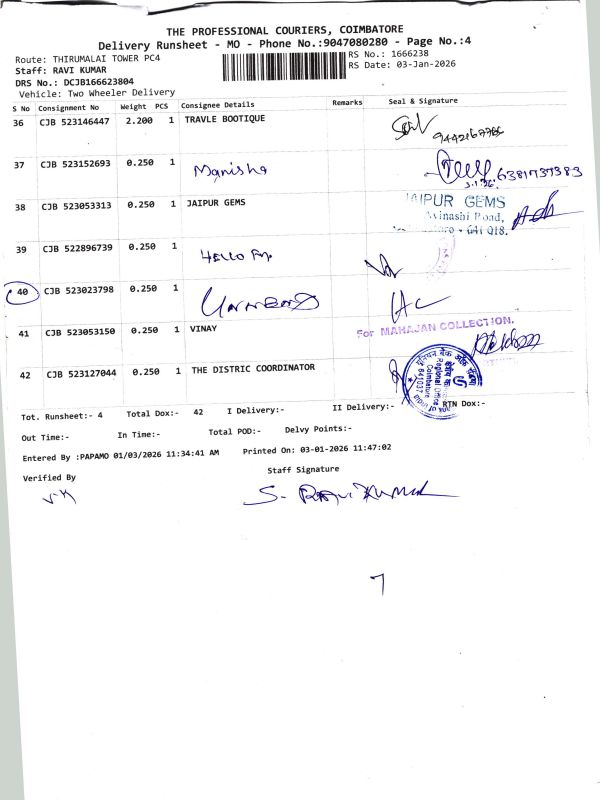 THE PROFESSIONAL COURIERS, COIMBATORE
Delivery Runsheet - MO - Phone No.:9047080280 - Page No.:4
Route: THIRUMALAI TOWER PC4
RS No.: 1666238
Staff: RAVI KUMAR
RS Date: 03-Jan-2026
DRS No.: DCJB166623804
Vehicle: Two Wheeler Delivery
S No Consignment No Weight PCS Consignee Details Remarks Seal & Signature
36 CJB 523146447 2.200 1 TRAVLE BOOTIQUE
37 CJB 523152693 0.250 1 Manisha 6381737383
3.1.26
38 CJB 523053313 0.250 1 JAIPUR GEMS JAIPUR GEMS
Avinashi Road,
- 641 018.
39 CJB 522896739 0.250 1 HELLO
40 CJB 523023798 0.250 1
41 CJB 523053150 0.250 1 VINAY For MAHAJAN COLLECTION.
42 CJB 523127044 0.250 1 THE DISTRIC COORDINATOR
Regional Office
Coimbatore
641037
Tot. Runsheet:- 4 Total Dox:- 42 I Delivery:- II Delivery:- RTN Dox:-
Out Time:- In Time:- Total POD:- Delvy Points:-
Entered By :PAPAMO 01/03/2026 11:34:41 AM Printed On: 03-01-2026 11:47:02
Verified By Staff Signature
S. Ravi Kumar
7